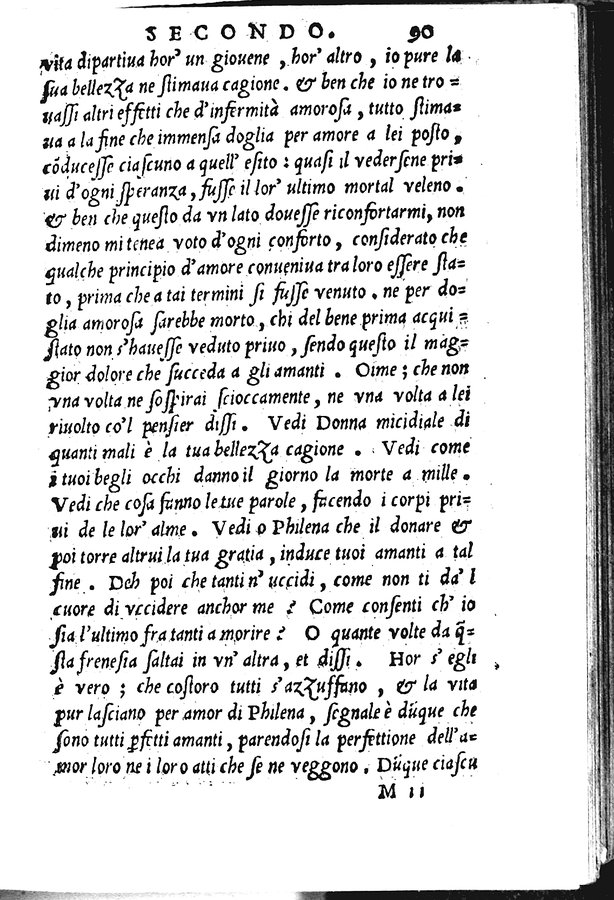 SECONDO. 90
vita dipartiua hor' un giouene, hor' altro, io pure la
ſua bellezza ne ſtimaua cagione. & ben che io ne tro=
uaſſi altri effetti che d'infermità amoroſa, tutto ſtima=
ua a la fine che immenſa doglia per amore a lei poſto,
cōduceſſe ciaſcuno a quell' eſito: quaſi il vederſene pri=
ui d'ogni ſperanza, fuſſe il lor' ultimo mortal veleno.
& ben che queſto da vn lato doueſſe riconfortarmi, non
dimeno mi tenea voto d'ogni conforto, conſiderato che
qualche principio d'amore conueniua tra loro eſſere ſta=
to, prima che a tai termini ſi fuſſe venuto. ne per do=
glia amoroſa ſarebbe morto, chi del bene prima acqui=
ſtato non s'haueſſe veduto priuo, ſendo queſto il mag=
gior dolore che ſucceda a gli amanti. Oime; che non
vna volta ne ſoſpirai ſcioccamente, ne vna volta a lei
riuolto co'l penſier diſſi. Vedi Donna micidiale di
quanti mali è la tua bellezza cagione. Vedi come
i tuoi begli occhi danno il giorno la morte a mille.
Vedi che coſa fanno le tue parole, facendo i corpi pri=
ui de le lor' alme. Vedi o Philena che il donare &
poi torre altrui la tua gratia, induce tuoi amanti a tal
fine. Deh poi che tanti n' uccidi, come non ti da' l
cuore di vccidere anchor me? Come conſenti ch' io
ſia l'ultimo fra tanti a morire? O quante volte da q̃=
ſta freneſia ſaltai in vn' altra, et diſſi. Hor s' egli
è vero; che coſtoro tutti s'azzuffano, & la vita
pur laſciano per amor di Philena, ſegnale è dūque che
ſono tutti ꝑfetti amanti, parendoſi la perfettione dell'a=
mor loro ne i loro atti che ſe ne veggono. Dūque ciaſcu
M ii